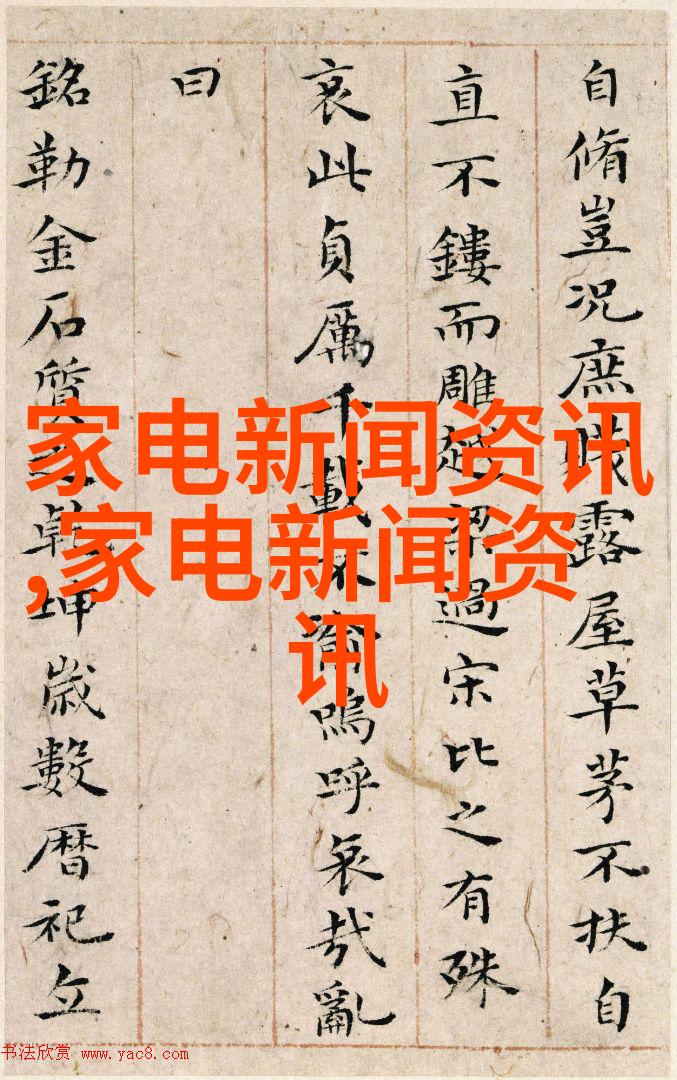 自脩豈況庶賎露屋草茅不扶自
直不鏤而雕越梁過宋比之有殊
哀此貞厲千載不渝嗚呼哀哉亂
曰
銘勒金石質之乾坤歲數暦祀立
家电新闻资讯
,家电新闻资
讯
书法欣赏 www.yac8.com